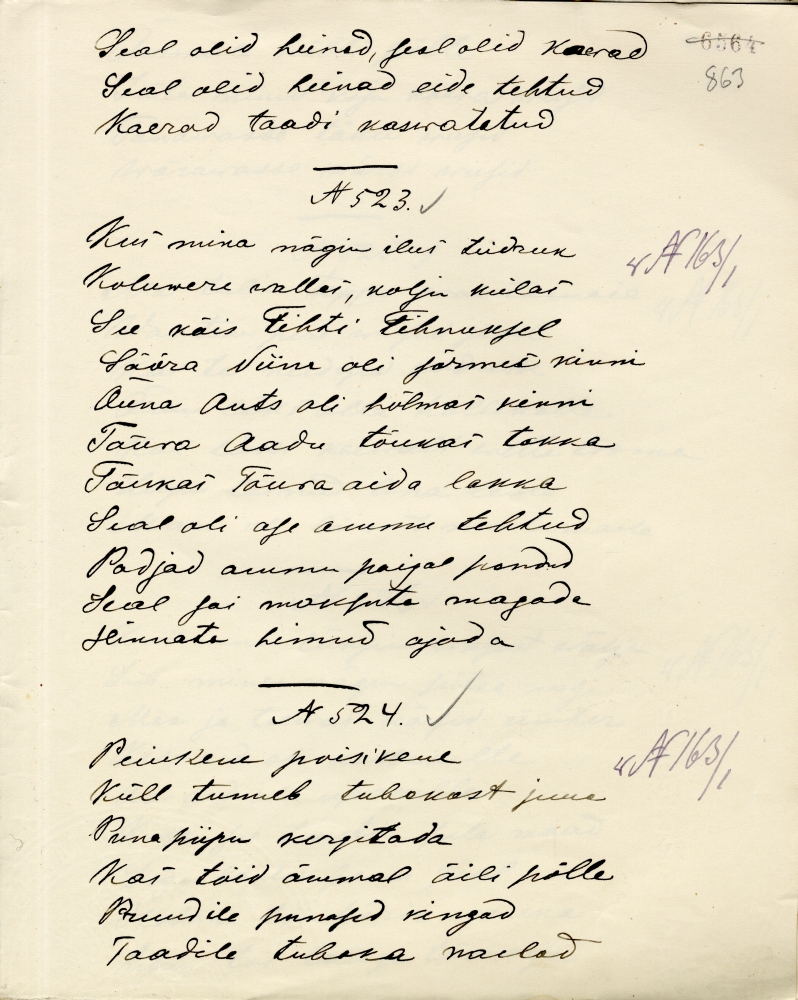 6564
863
Seal olid heinad, seal olid kaerad
Seal olid heinad eide tehtud
Kaerad taadi kaswatatud
№ 523.
Kus mina nägin ilus tüdruk
Koluwere wallas, kolju külas
See käis Tihti Tihnuksel
Sõõra Viiu oli sõrmes kinni
Õuna Ants oli hõlmas kinni
Tõura Aadu tõukas takka
Tõukas Tõura aida lakka
Seal oli ase ammu tehtud
Padjad ammu paigal pandud
Seal sai maksuta magada
Hinnata himud ajada
№ 524.
Peiukene poisikene
Küll tunneb tubakast juua
Puna piipu kergitada
Kas tõid ämmal äili põlle
Pruudile punased kingad
Taadile tubaka naelad